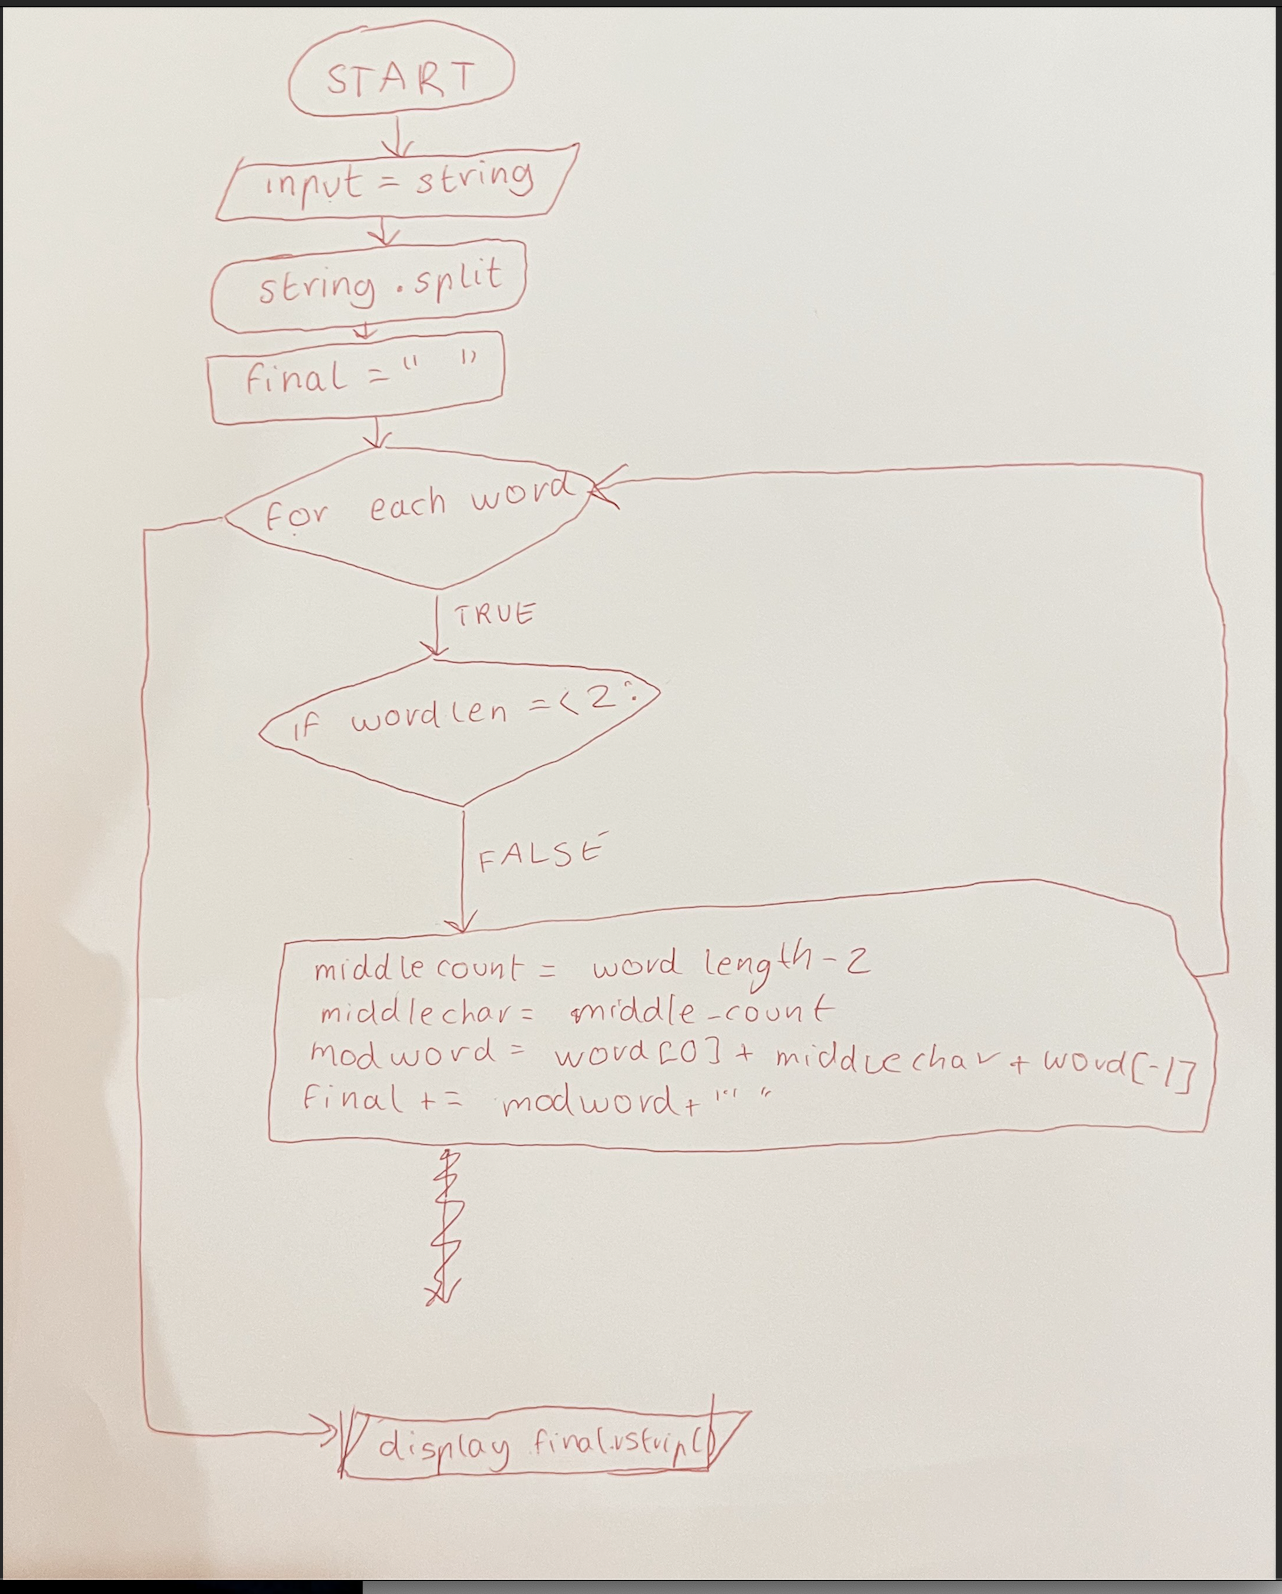 START
input = string
string.split
final = " "
for each word
TRUE
if wordlen =< 2:
FALSE
middlecount = word length-2
middlechar = middle-count
modword = word[0] + middlechar + word[-1]
final += modword + " "
display final.rstrip()